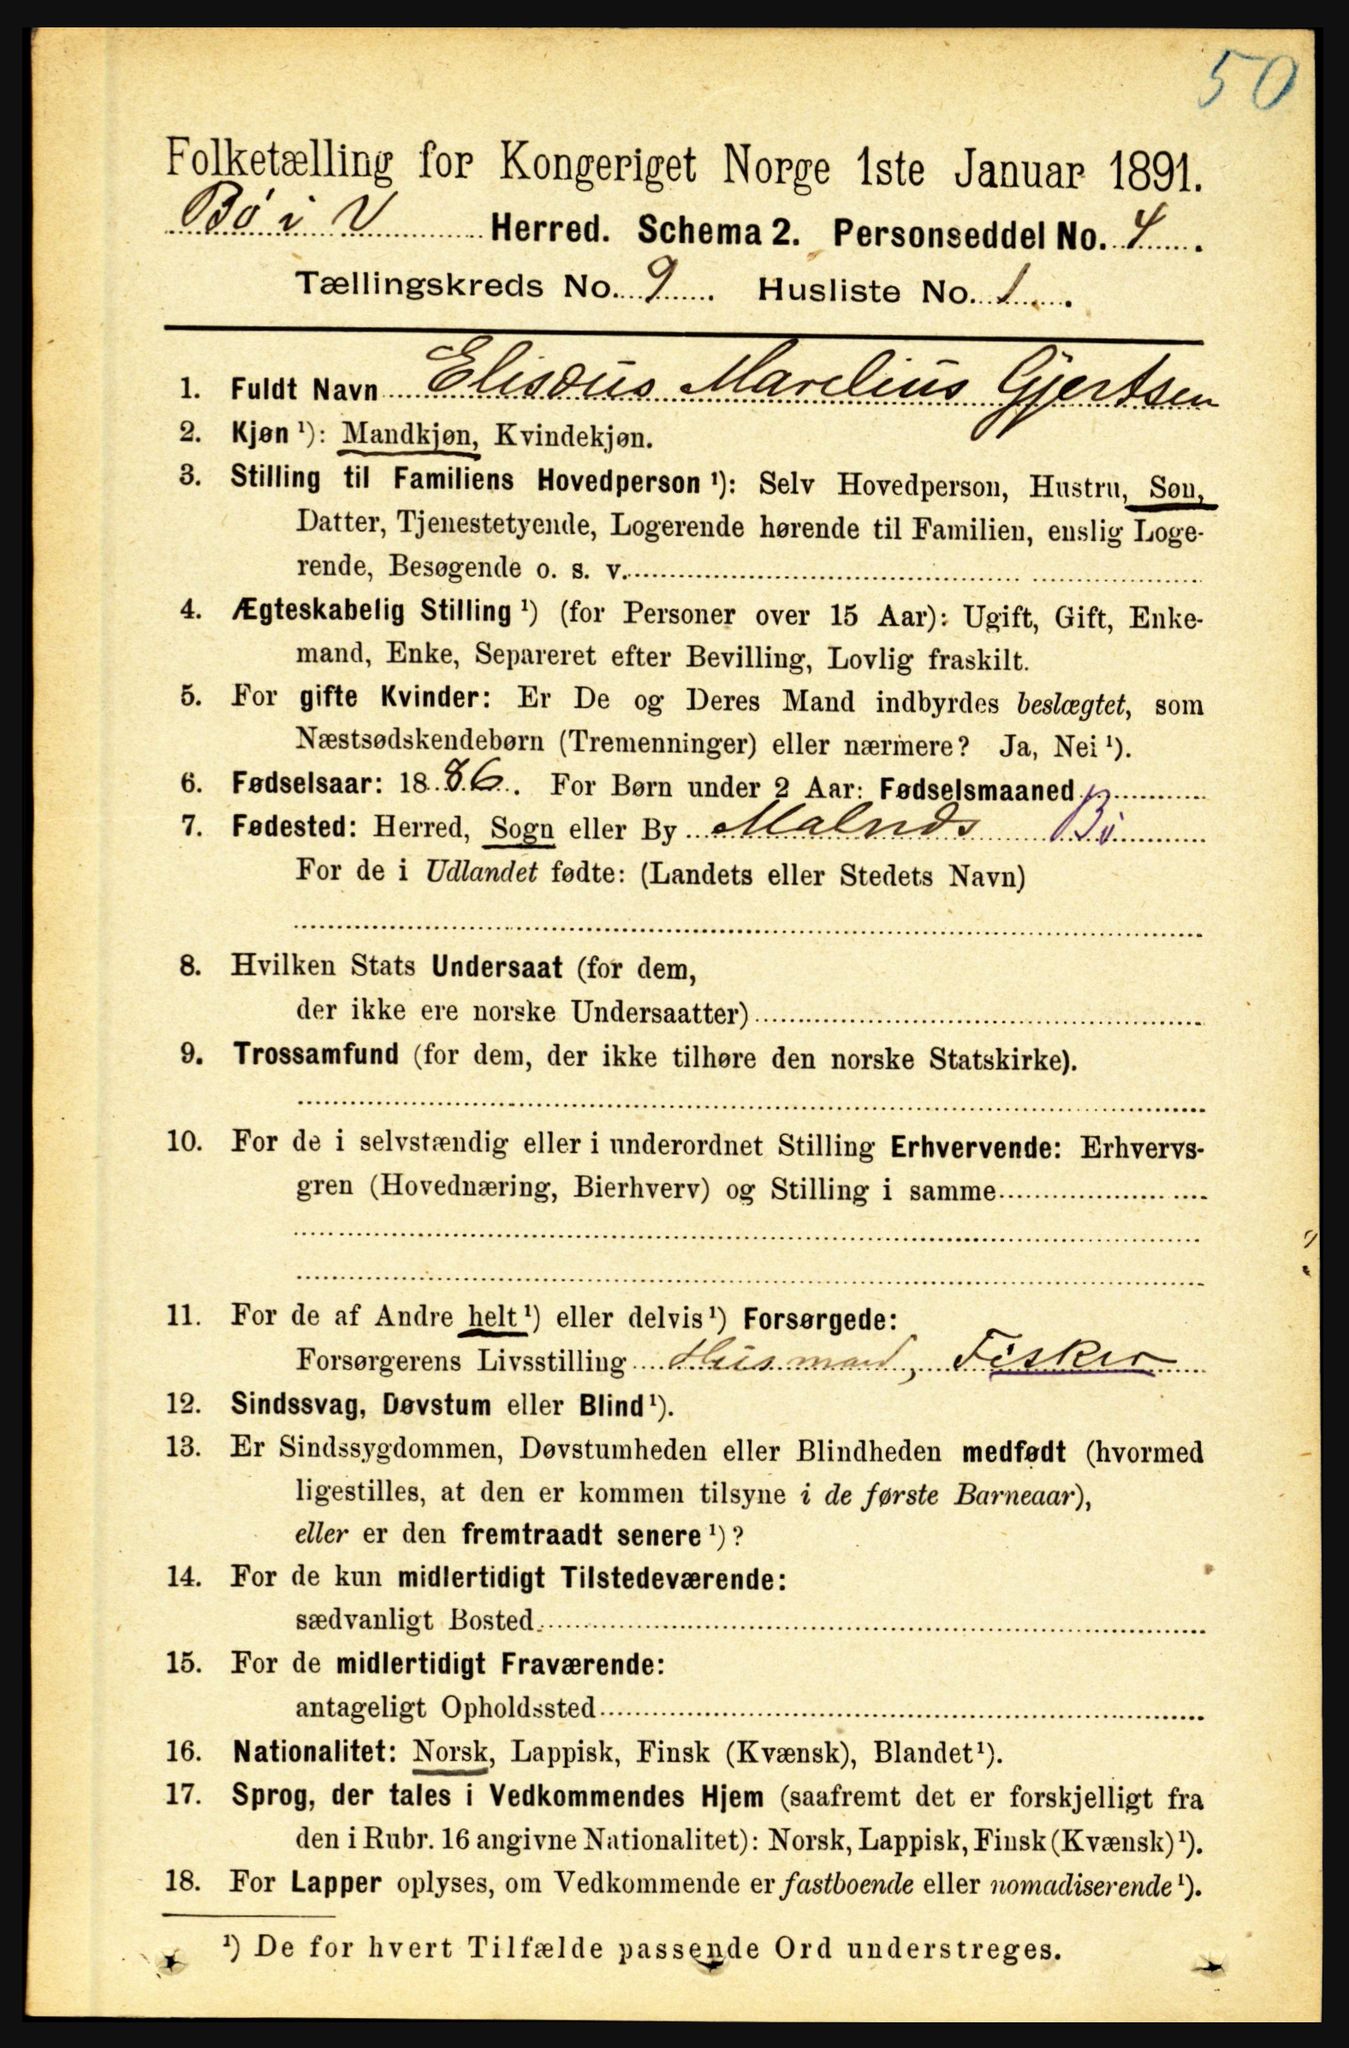 50
Folketælling for Kongeriget Norge 1ste Januar 1891.
Bø i V Herred. Schema 2. Personseddel No. 4.
Tællingskreds No. 9. Husliste No. 1.
1. Fuldt Navn Elisæus Marelius Gjertsen
2. Kjøn ¹): Mandkjøn, Kvindekjøn.
3. Stilling til Familiens Hovedperson ¹): Selv Hovedperson, Hustru, Søn,
Datter, Tjenestetyende, Logerende hørende til Familien, enslig Loge-
rende, Besøgende o. s. v.
4. Ægteskabelig Stilling ¹) (for Personer over 15 Aar): Ugift, Gift, Enke-
mand, Enke, Separeret efter Bevilling, Lovlig fraskilt.
5. For gifte Kvinder: Er De og Deres Mand indbyrdes beslægtet, som
Næstsødskendebørn (Tremenninger) eller nærmere? Ja, Nei ¹).
6. Fødselsaar: 1886. For Børn under 2 Aar: Fødselsmaaned
7. Fødested: Herred, Sogn eller By Malnes Bø
For de i Udlandet fødte: (Landets eller Stedets Navn)
8. Hvilken Stats Undersaat (for dem,
der ikke ere norske Undersaatter)
9. Trossamfund (for dem, der ikke tilhøre den norske Statskirke).
10. For de i selvstændig eller i underordnet Stilling Erhvervende: Erhvervs-
gren (Hovednæring, Bierhverv) og Stilling i samme
11. For de af Andre helt ¹) eller delvis ¹) Forsørgede:
Forsørgerens Livsstilling Husmand, Fisker
12. Sindssvag, Døvstum eller Blind ¹).
13. Er Sindssygdommen, Døvstumheden eller Blindheden medfødt (hvormed
ligestilles, at den er kommen tilsyne i de første Barneaar),
eller er den fremtraadt senere ¹)?
14. For de kun midlertidigt Tilstedeværende:
sædvanligt Bosted
15. For de midlertidigt Fraværende:
antageligt Opholdssted
16. Nationalitet: Norsk, Lappisk, Finsk (Kvænsk), Blandet ¹).
17. Sprog, der tales i Vedkommendes Hjem (saafremt det er forskjelligt fra
den i Rubr. 16 angivne Nationalitet): Norsk, Lappisk, Finsk (Kvænsk) ¹).
18. For Lapper oplyses, om Vedkommende er fastboende eller nomadiserende ¹).
¹) De for hvert Tilfælde passende Ord understreges.